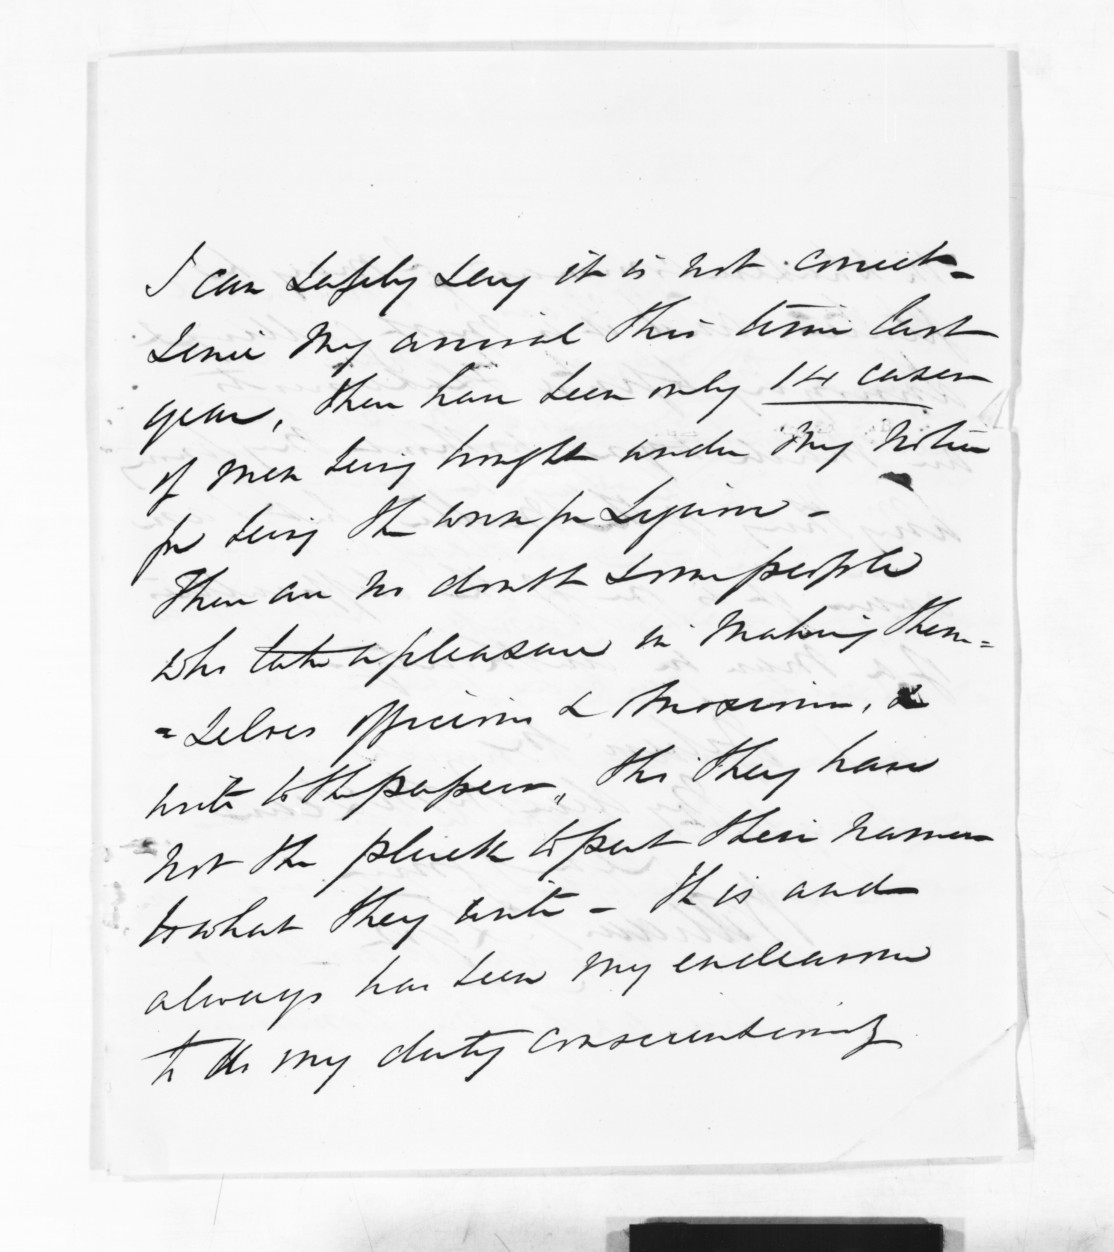 I can safely say it is not correct -
Since my arrival this time last
year, there have been only 14 cases
of men being brought under my notice
for being the worse for Liquor -
There are no doubt some people
who take a pleasure in making them=
=selves officious & noxious, &
write to the papers, tho they have
not the pluck to put their names
to what they write - It is and
always has been my endeavour
to do my duty conscientiously